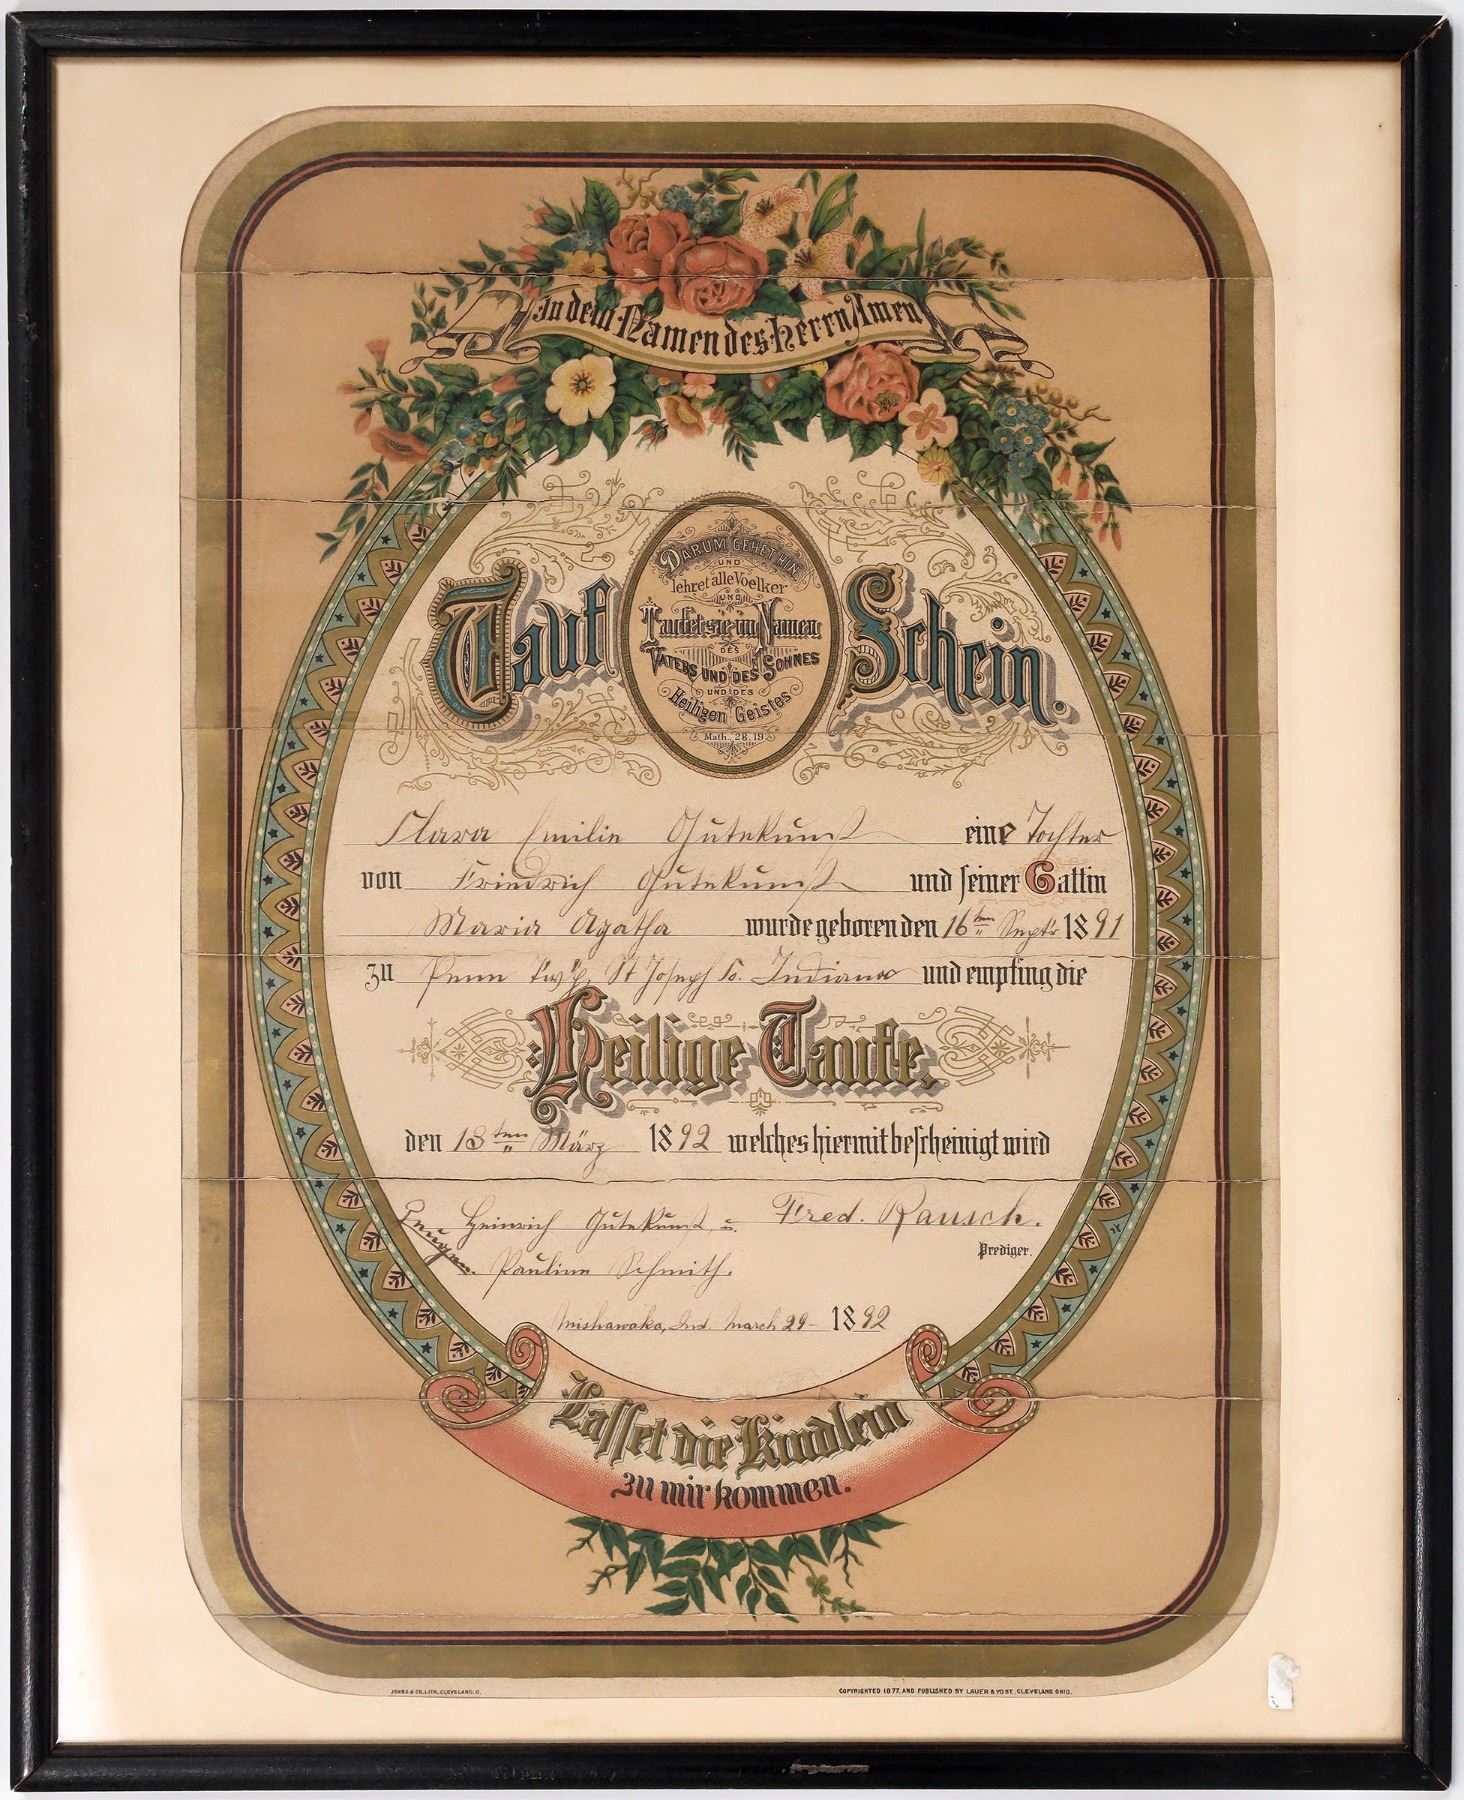 In dem Namen des Herrn Amen
Tauf Schein.
DARUM GEHET HIN
UND
lehret alle Voelker
UND
Taufet sie im Namen
DES
VATERS UND DES SOHNES
UND DES
Heiligen Geistes
Math., 28, 19
Clara Emilie Gutekunst eine Tochter
von Friedrich Gutekunst und seiner Gattin
Maria Agatha wurde geboren den 16ten Septr 1891
zu Penn Tw'p, St Joseph Co. Indiana und empfing die
Heilige Taufe,
den 13ten März 1892 welches hiermit bescheinigt wird
Zeugen Heinrich Gutekunst, u. Fred. Rausch.
Pauline Schmith. Prediger.
Mishawaka, Ind. March 29- 1892
Lasset die Kindlein
zu mir kommen.
JONES & CO., LITH., CLEVELAND, O.
COPYRIGHTED 1877, AND PUBLISHED BY LAUER & YOST, CLEVELAND, OHIO.